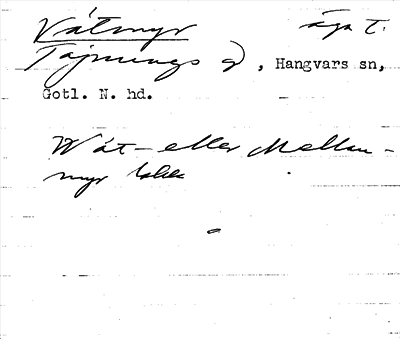 Våtmyr äga t.
Tajnungs , Hangvars sn,
Gotl. N. hd.
Wåt- eller Mellan-
myr